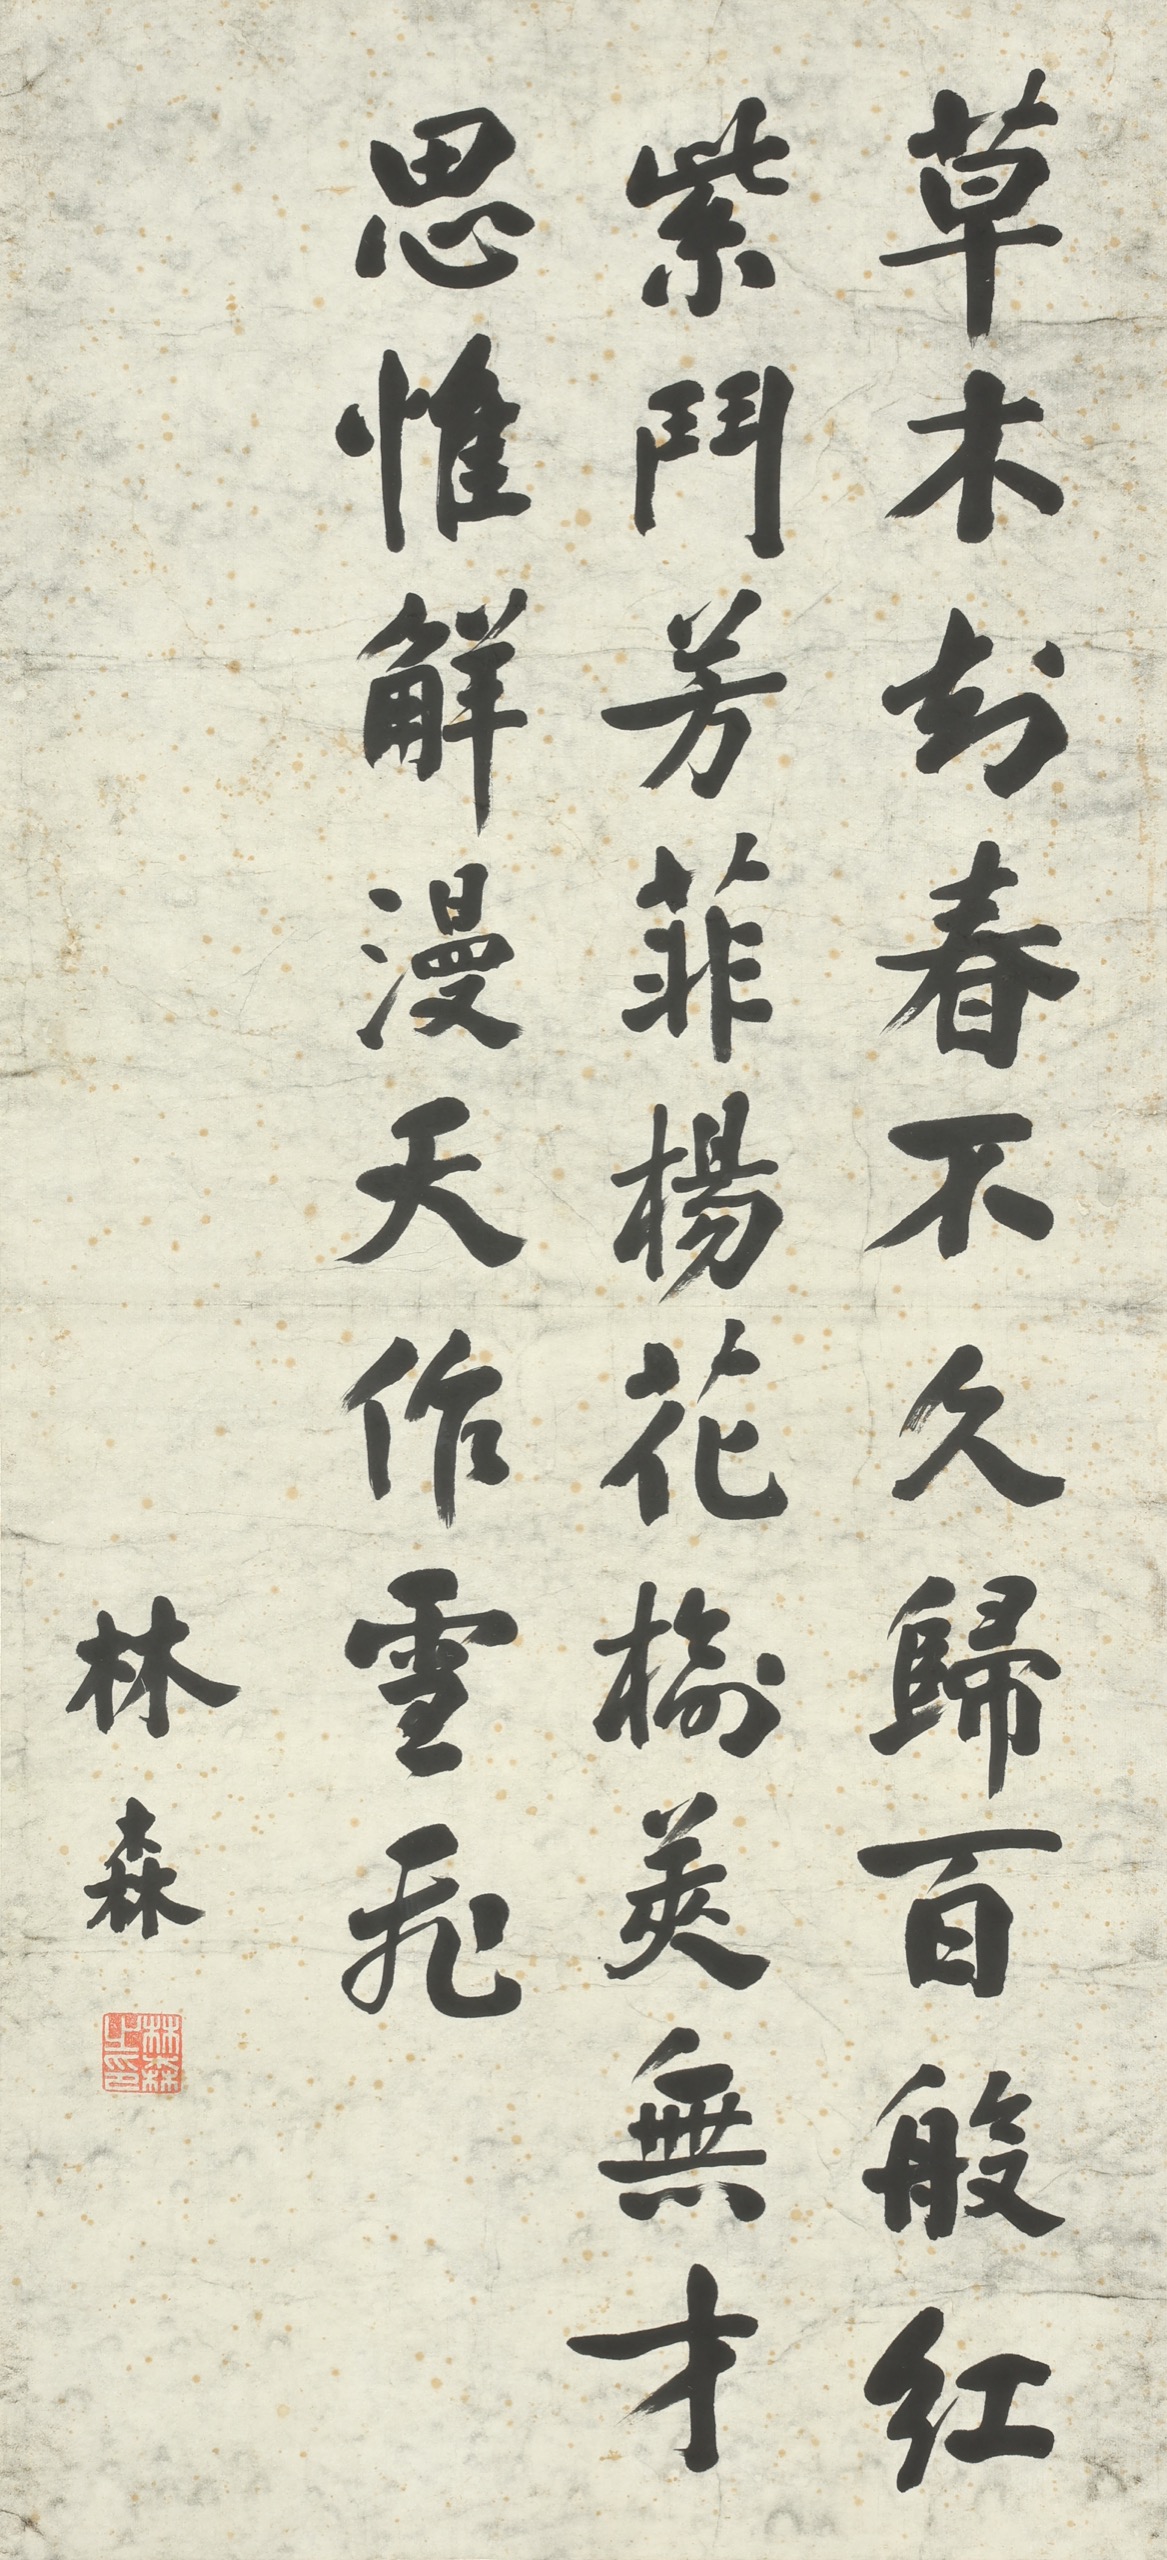 草木知春不久歸百般紅
紫鬥芳菲楊花榆莢無才
思惟解漫天作雪飛
林森
林森之印